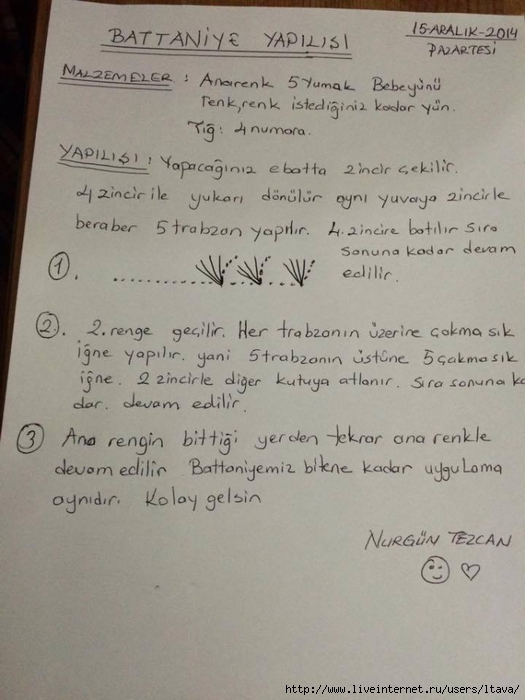 BATTANİYE YAPILIŞI
15-ARALIK-2014
PAZARTESİ
MALZEMELER : Anarenk 5 Yumak Bebeyünü
renk,renk istediğiniz kadar yün.
Tığ: 4 numara.
YAPILIŞI : Yapacağınız ebatta zincir çekilir.
4 zincir ile yukarı dönülür aynı yuvaya zincirle
beraber 5 trabzan yapılır. 4. zincire batılır sıra
sonuna kadar devam
edilir.
1.
2. 2. renge geçilir. Her trabzanın üzerine çakma sık
iğne yapılır. yani 5 trabzanın üstüne 5 çakma sık
iğne. 2 zincirle diğer kutuya atlanır. Sıra sonuna ka
dar. devam edilir.
3 Ana rengin bittiği yerden tekrar ana renkle
devam edilir Battaniyemiz bitene kadar uygulama
aynıdır. Kolay gelsin
NURGÜN TEZCAN
http://www.liveinternet.ru/users/ltava/